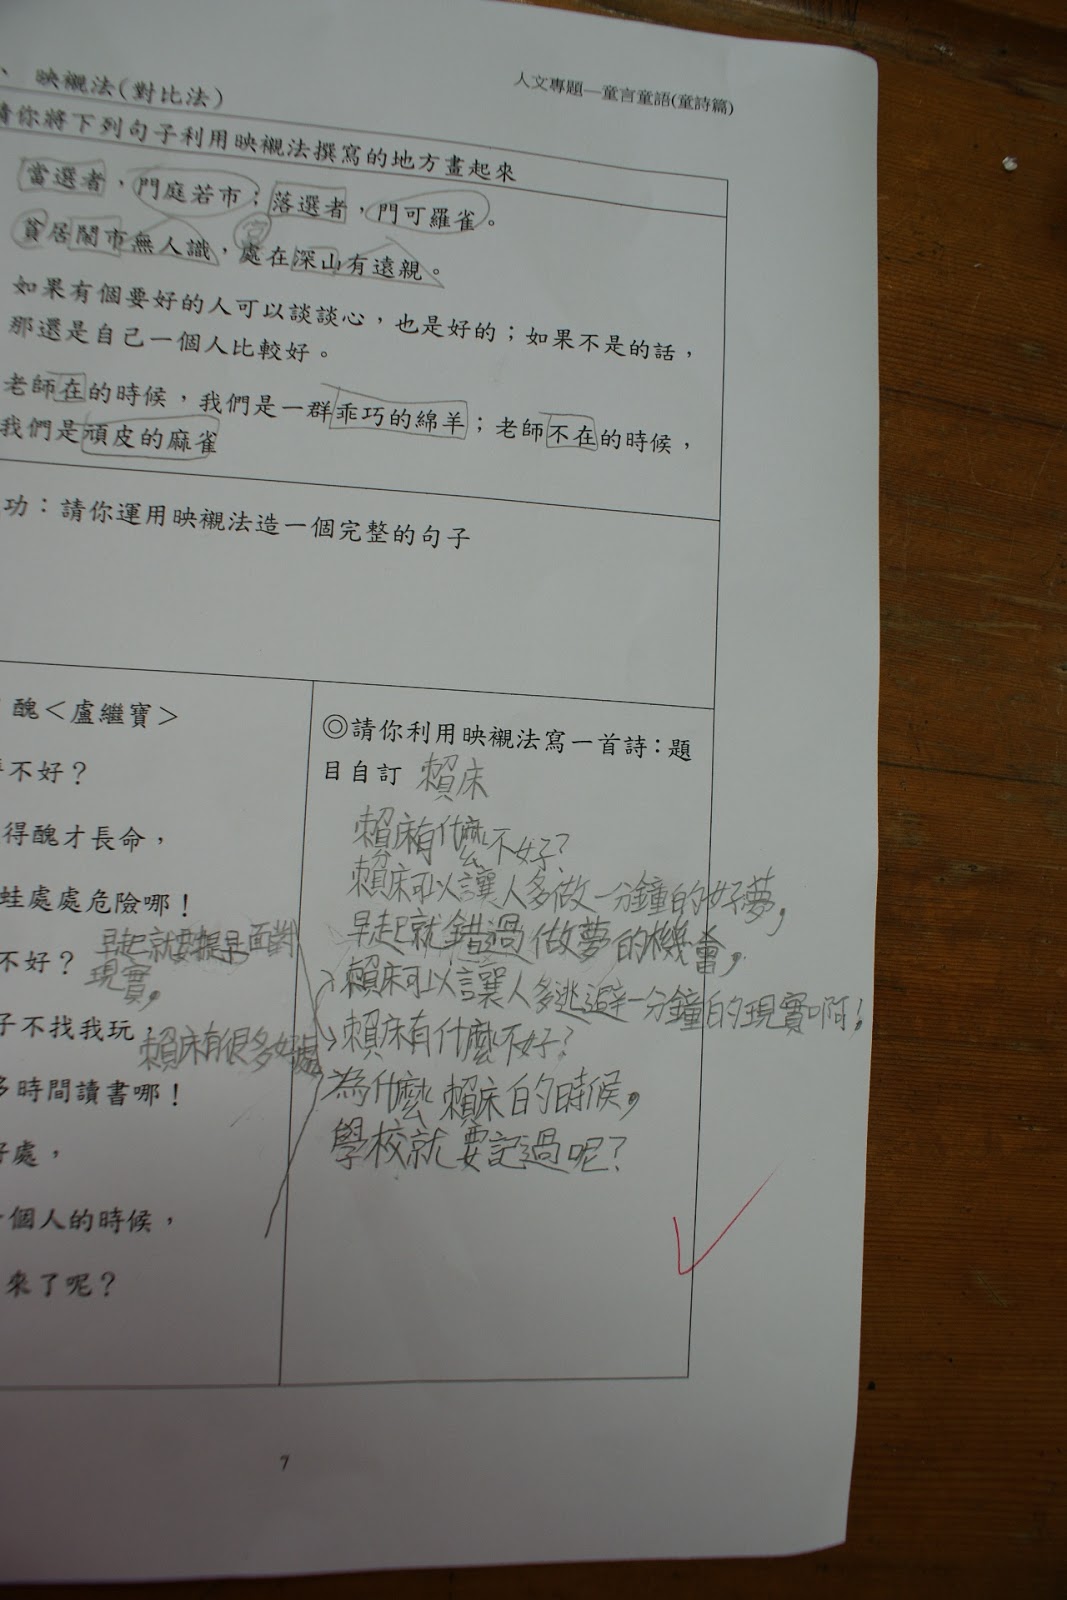 人文專題—童言童語(童詩篇)
、 映襯法(對比法)
請你將下列句子利用映襯法撰寫的地方畫起來
當選者，門庭若市；落選者，門可羅雀。
宮
貧居鬧市無人識，處在深山有遠親。
如果有個要好的人可以談談心，也是好的；如果不是的話，
那還是自己一個人比較好。
老師在的時候，我們是一群乖巧的綿羊；老師不在的時候，
我們是頑皮的麻雀
功：請你運用映襯法造一個完整的句子
醜＜盧繼寶＞
不好？
得醜才長命，
蛙處處危險哪！
不好？
子不找我玩，
多時間讀書哪！
好處，
一個人的時候，
來了呢？
◎請你利用映襯法寫一首詩：題
目自訂 賴床
賴床有什麼不好？
賴床可以讓人多做一分鐘的好夢，
早起就錯過做夢的機會，
賴床可以讓人多逃避一分鐘的現實啊！
早起就要提早面對
現實，
賴床有什麼不好？
賴床有很多好處
為什麼賴床的時候，
學校就要記過呢？
7